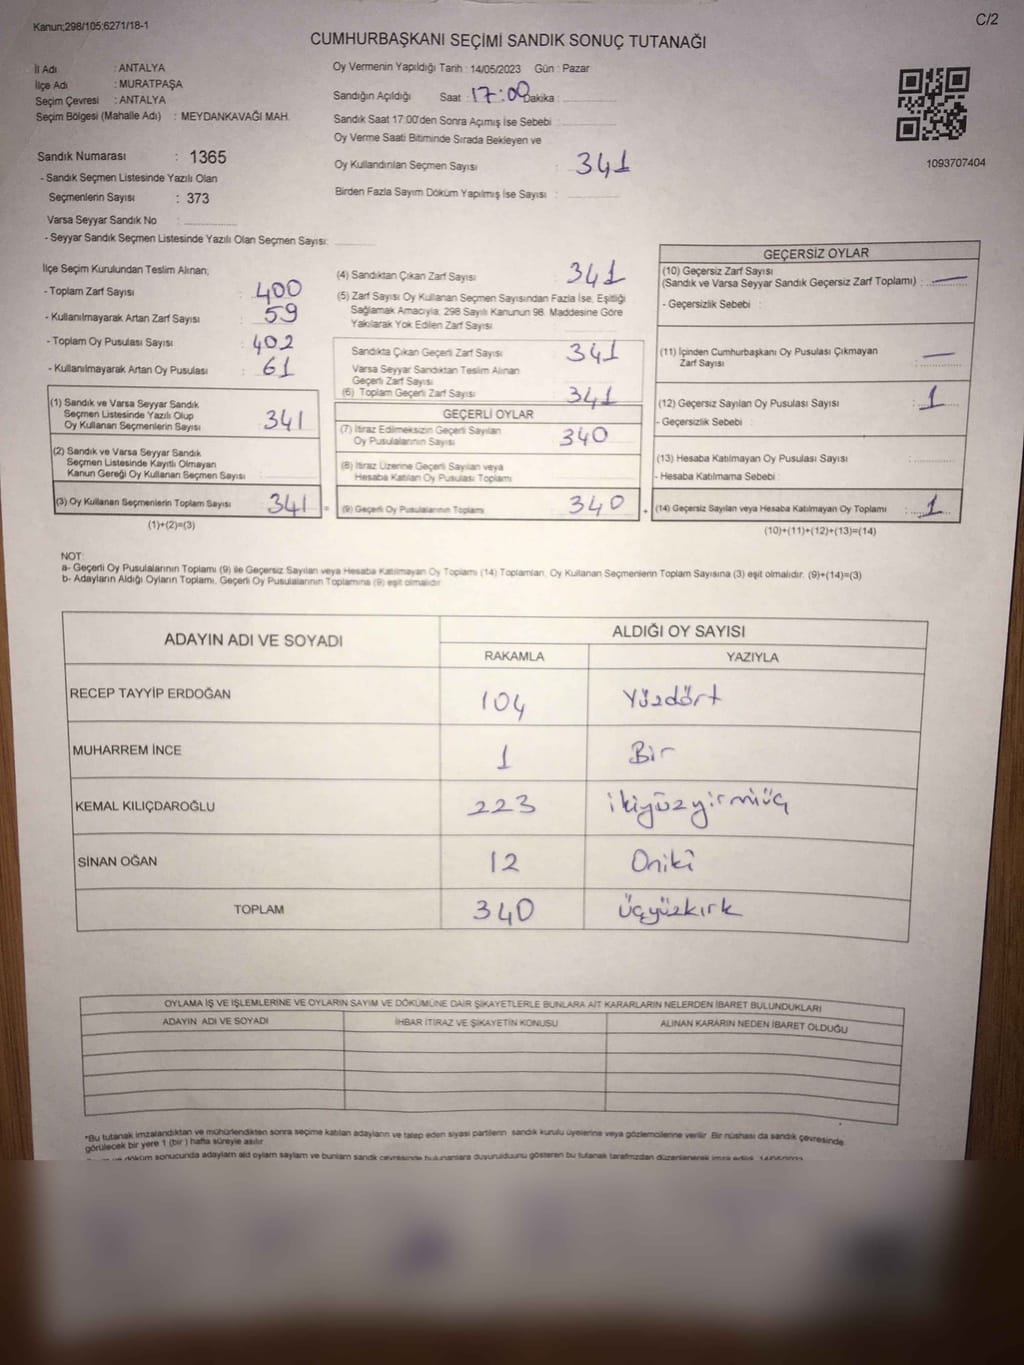 Kanun;298/105;6271/18-1
C/2
CUMHURBAŞKANI SEÇİMİ SANDIK SONUÇ TUTANAĞI
İl Adı : ANTALYA
İlçe Adı : MURATPAŞA
Seçim Çevresi : ANTALYA
Seçim Bölgesi (Mahalle Adı) : MEYDANKAVAĞI MAH.
Oy Vermenin Yapıldığı Tarih : 14/05/2023 Gün : Pazar
Sandığın Açıldığı Saat : 17:00 Dakika :
Sandık Saat 17:00'den Sonra Açımış İse Sebebi :
Oy Verme Saati Bitiminde Sırada Bekleyen ve
Oy Kullandırılan Seçmen Sayısı : 341
Birden Fazla Sayım Döküm Yapılmış İse Sayısı :
1093707404
Sandık Numarası : 1365
- Sandık Seçmen Listesinde Yazılı Olan
Seçmenlerin Sayısı : 373
Varsa Seyyar Sandık No :
- Seyyar Sandık Seçmen Listesinde Yazılı Olan Seçmen Sayısı:
İlçe Seçim Kurulundan Teslim Alınan;
- Toplam Zarf Sayısı : 400
- Kullanılmayarak Artan Zarf Sayısı : 59
- Toplam Oy Pusulası Sayısı : 402
- Kullanılmayarak Artan Oy Pusulası : 61
(1) Sandık ve Varsa Seyyar Sandık
Seçmen Listesinde Yazılı Olup
Oy Kullanan Seçmenlerin Sayısı : 341
(2) Sandık ve Varsa Seyyar Sandık
Seçmen Listesinde Kayıtlı Olmayan
Kanun Gereği Oy Kullanan Seçmen Sayısı :
(3) Oy Kullanan Seçmenlerin Toplam Sayısı : 341 =
(1)+(2)=(3)
(4) Sandıktan Çıkan Zarf Sayısı : 341
(5) Zarf Sayısı Oy Kullanan Seçmen Sayısından Fazla İse, Eşitliği
Sağlamak Amacıyla, 298 Sayılı Kanunun 98. Maddesine Göre
Yakılarak Yok Edilen Zarf Sayısı :
Sandıkta Çıkan Geçerli Zarf Sayısı : 341
Varsa Seyyar Sandıktan Teslim Alınan
Geçerli Zarf Sayısı :
(6) Toplam Geçerli Zarf Sayısı : 341
GEÇERLİ OYLAR
(7) İtiraz Edilmeksizin Geçerli Sayılan
Oy Pusulalarının Sayısı : 340
(8) İtiraz Üzerine Geçerli Sayılan veya
Hesaba Katılan Oy Pusulası Toplamı :
(9) Geçerli Oy Pusulalarının Toplamı : 340 +
GEÇERSİZ OYLAR
(10) Geçersiz Zarf Sayısı
(Sandık ve Varsa Seyyar Sandık Geçersiz Zarf Toplamı) : —
- Geçersizlik Sebebi :
(11) İçinden Cumhurbaşkanı Oy Pusulası Çıkmayan
Zarf Sayısı : —
(12) Geçersiz Sayılan Oy Pusulası Sayısı : 1
- Geçersizlik Sebebi :
(13) Hesaba Katılmayan Oy Pusulası Sayısı :
- Hesaba Katılmama Sebebi :
(14) Geçersiz Sayılan veya Hesaba Katılmayan Oy Toplamı : 1
(10)+(11)+(12)+(13)=(14)
NOT:
a- Geçerli Oy Pusulalarının Toplamı (9) ile Geçersiz Sayılan veya Hesaba Katılmayan Oy Toplamı (14) Toplamları, Oy Kullanan Seçmenlerin Toplam Sayısına (3) eşit olmalıdır. (9)+(14)=(3)
b- Adayların Aldığı Oyların Toplamı, Geçerli Oy Pusulalarının Toplamına (9) eşit olmalıdır
ADAYIN ADI VE SOYADI
ALDIĞI OY SAYISI
RAKAMLA YAZIYLA
RECEP TAYYİP ERDOĞAN 104 Yüzdört
MUHARREM İNCE 1 Bir
KEMAL KILIÇDAROĞLU 223 ikiyüzyirmiüç
SİNAN OĞAN 12 Oniki
TOPLAM 340 Üçyüzkırk
OYLAMA İŞ VE İŞLEMLERİNE VE OYLARIN SAYIM VE DÖKÜMÜNE DAİR ŞİKAYETLERLE BUNLARA AİT KARARLARIN NELERDEN İBARET BULUNDUKLARI
ADAYIN ADI VE SOYADI İHBAR İTİRAZ VE ŞİKAYETİN KONUSU ALINAN KARARIN NEDEN İBARET OLDUĞU
*Bu tutanak imzalandıktan ve mühürlendikten sonra seçime katılan adayların ve talep eden siyasi partilerin sandık kurulu üyelerine veya gözlemcilerine verilir. Bir nüshası da sandık çevresinde
görülecek bir yere 1 (bir ) hafta süreyle asılır.